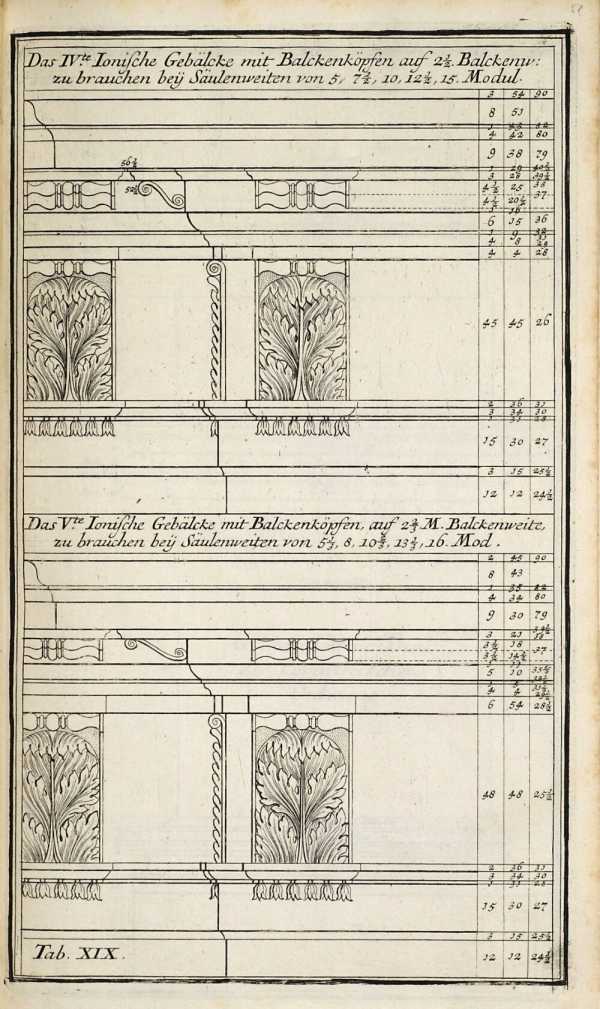 Das IVte Ionische Gebälcke mit Balckenköpfen auf 2½. Balckenw:
zu brauchen beÿ Säulenweiten von 5, 7½, 10, 12½, 15. Modul.
3 54 90
8 51
4 42 80
9 38 79
56½
3 28 39½
52½
4½ 25
37
4½ 20½
6 15 36
1 9 32
4 8
4 4 28
45 45 26
2 36 31
3 34 30
1 31 28
15 30 27
3 15 25½
12 12 24½
Das Vte Ionische Gebälcke mit Balckenköpfen, auf 2⅔ M. Balckenweite,
zu brauchen beÿ Säulenweiten von 5⅓, 8, 10⅔, 13⅓, 16. Mod.
2 45 90
8 43
1 35 82
4 34 80
9 30 79
3 21
3½ 18
37
3½ 14½
5 10 35½
4 4
6 54 28½
48 48 25½
2 36 31
3 34 30
1 31 28
15 30 27
3 15 25½
12 12 24½
Tab. XIX.